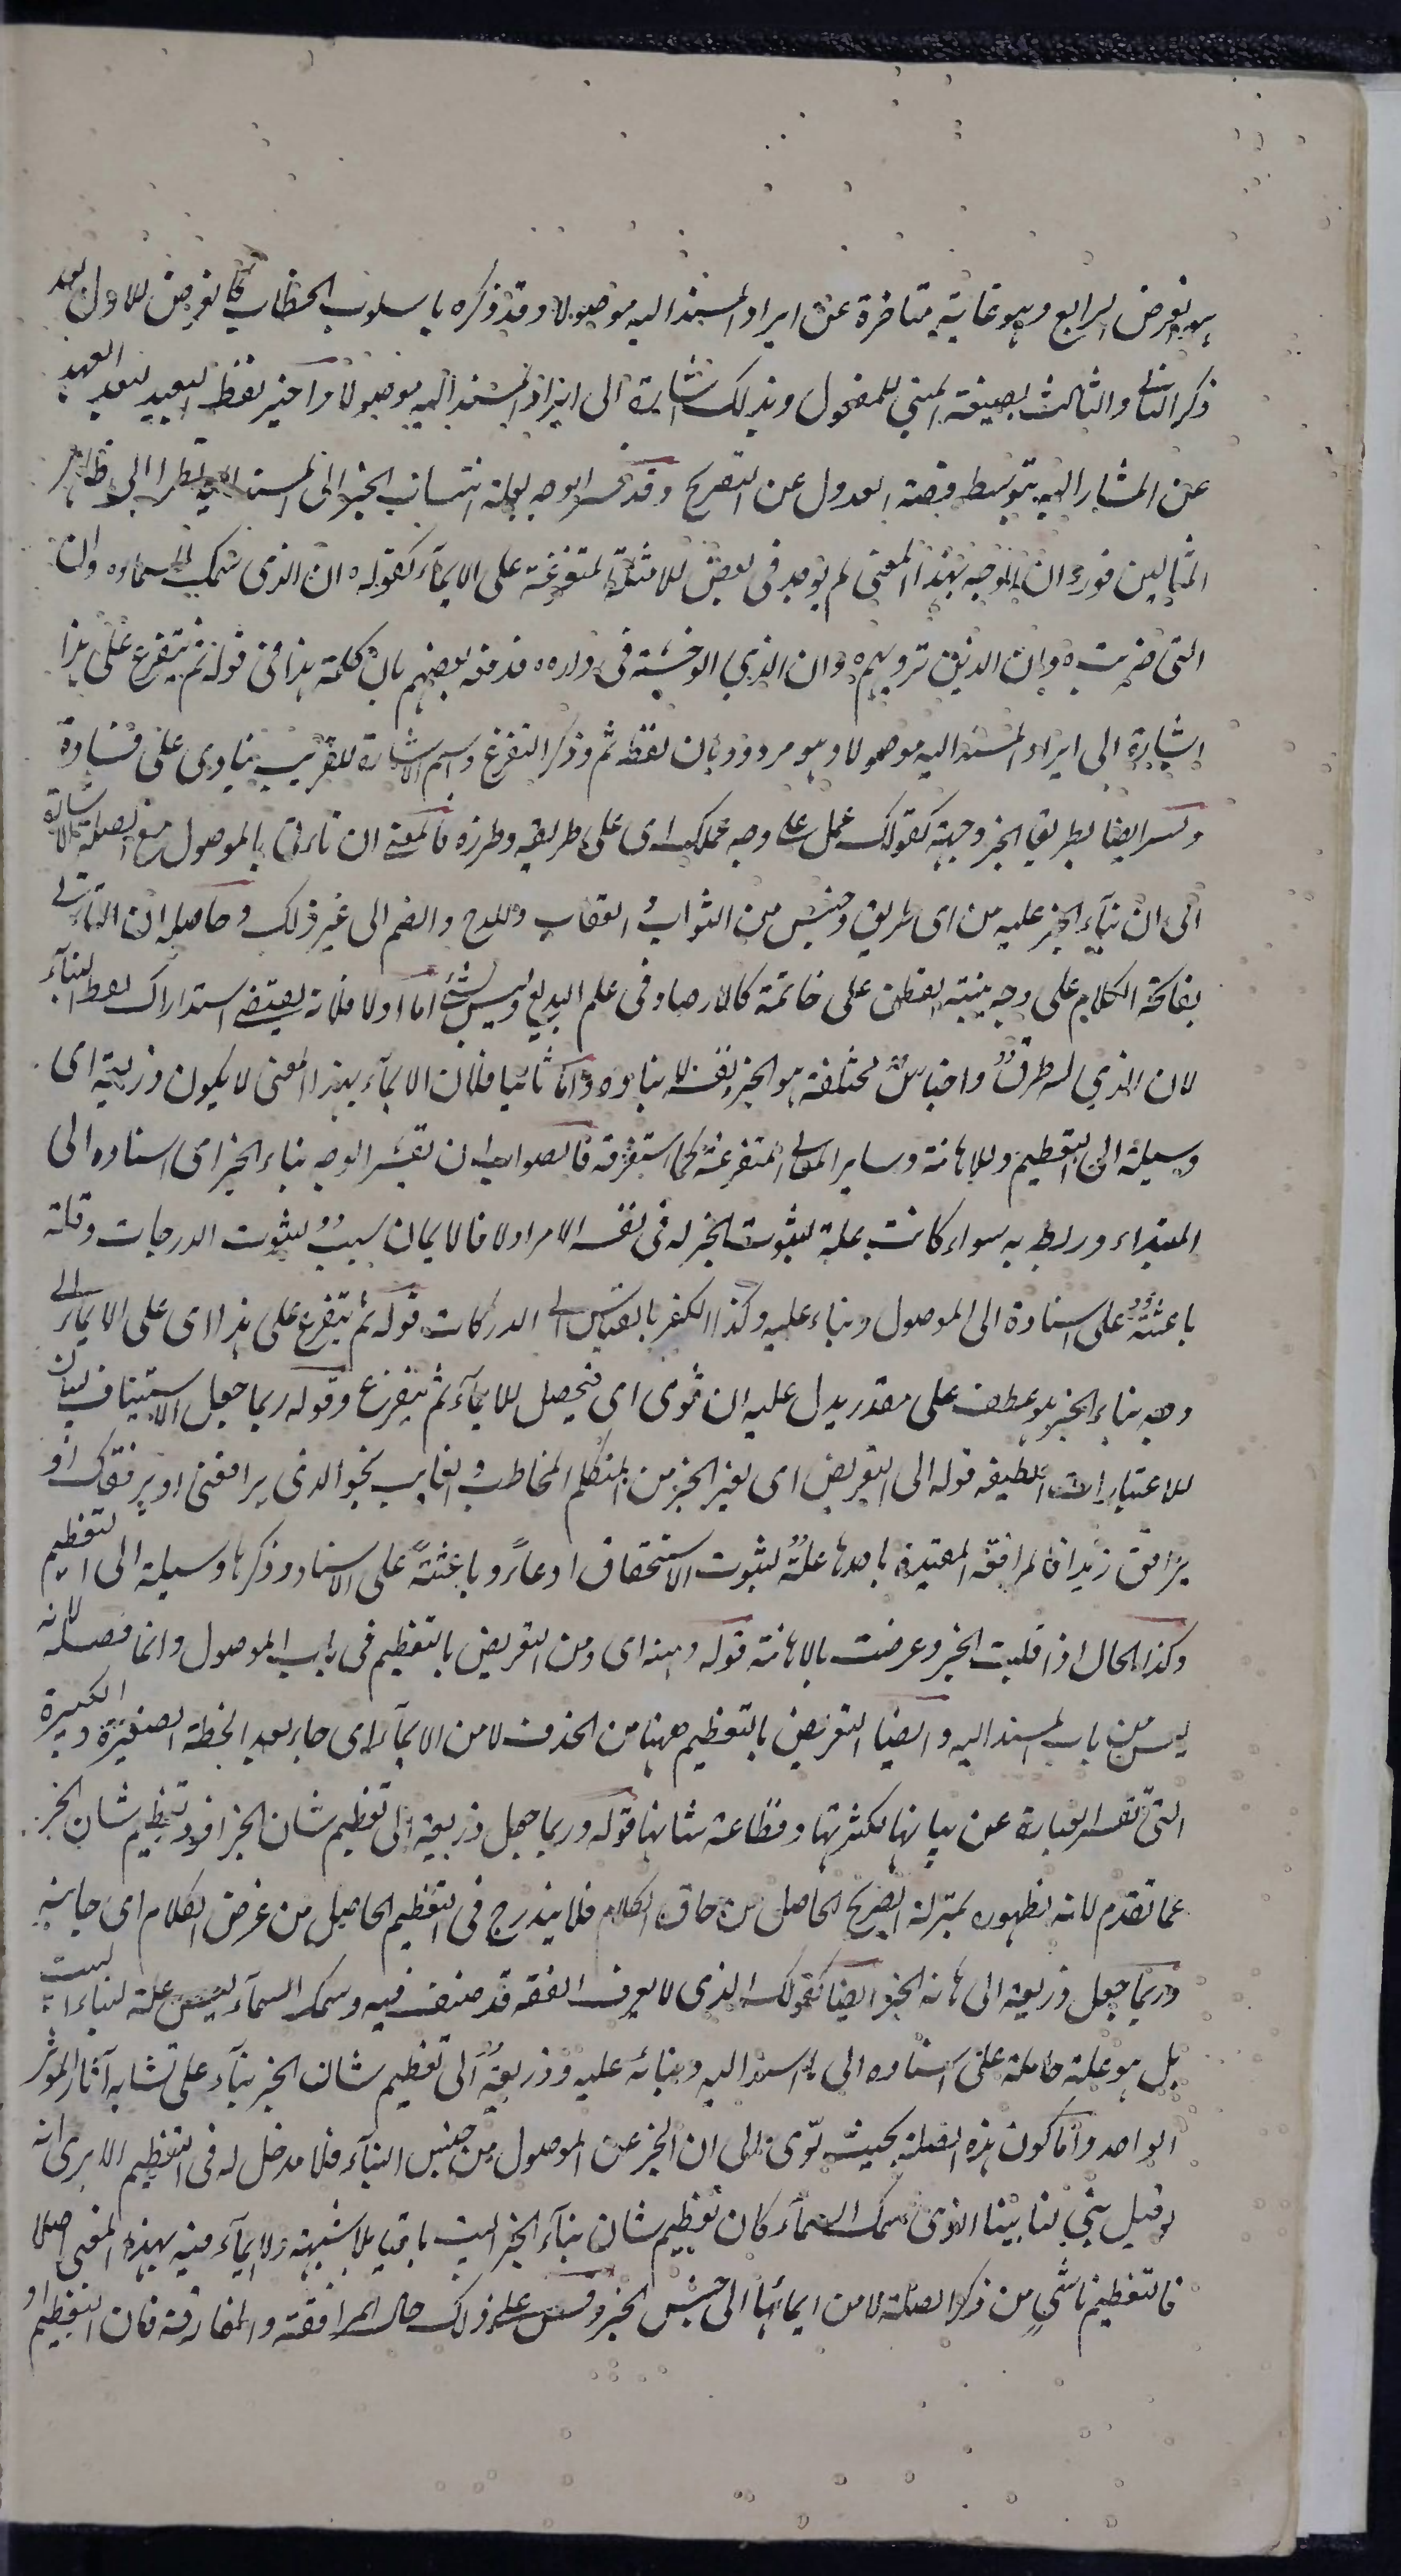 هو الغرض الرابع وهو غاية متاخرة عن ايراد المسند اليه موصولا وقد ذكره باسلوب الخطاب كما تعرض للاول بعد
ذكر الثاني والثالث بصيغة المبني للمفعول وبذلك اشارة الى ايراد المسند اليه موصولا واختير لفظ البعيد لبعد العهد
عن المشار اليه بتوسط قصة العدول عن التصريح وقد فسر الوجه بعلة انتساب الخبر الى المسند اليه نظرا الى ظاهر
المثالين فورد ان الوجه بهذا المعنى لم يوجد في بعض الامثلة المتفرعة على الايماء كقوله ه ان الذي سمك السماء ه وان
التي ضربت ه وان الذين ترونهم ه وان الذي الوحشة في داره ه فدفعه بعضهم بان كلمة هذا في قوله ثم يتفرع على هذا
اشارة الى ايراد المسند اليه موصولا وهو مردود بان لفظ ثم وذكر التفرع واسم الاشارة للقريب ينادي على فساده
وفسر ايضا بطريق الخبر وجهته كقولك عمل على وجه عملك اي على طريقه وطرزه فالمعنى ان تأتي بالموصول مع الصلة للاشارة
الى ان بناء الخبر عليه من اي طريق وجنس من الثواب والعقاب والمدح والذم الى غير ذلك وحاصله ان تأتي
بفاتحة الكلام على وجه ينبه الفطن على خاتمته كالارصاد في علم البديع وليس بشيء اما اولا فلانه يقتضي استدراك لفظ البناء
لان الذي له طرق واجناس مختلفة هو الخبر نفسه لا بناؤه واما ثانيا فلان الايماء بهذا المعنى لا يكون ذريعة اي
وسيلة الى التعظيم والاهانة وساير المعاني المتفرعة كما ستعرفه فالصواب ان يفسر الوجه بناء الخبر اي اسناده الى
المبتداء وربطه به سواء كانت علة لثبوت الخبر له في نفس الامر اولا فالايمان سبب لثبوت الدرجات وعلة
باعثة على اسناده الى الموصول وبناء عليه وكذا الكفر بالقياس الى الدركات قوله ثم يتفرع على هذا اي على الايماء الى
وجه بناء الخبر هو عطف على مقدر يدل عليه ان توى اي فيحصل للايماء ثم يتفرع وقوله ربما جعل الاستيناف لبيان
للاعتبارات اللطيفة قوله الى التعريض اي لغير الخبر من المتكلم المخاطب والغايب نحو الذي يرافقني او يرافقك او
يرافق زيدا فالمرافقة المقيدة باحدها علة لثبوت الاستحقاق ادعاءً وباعثةً على الاسناد وذكرها وسيلة الى التعظيم
وكذا الحال اذا قلبت الخبر وعرضت بالاهانة قوله ومنه اي ومن التعريض بالتعظيم في باب الموصول وانما فصله لانه
ليس من باب المسند اليه وايضا التعريض بالتعظيم ههنا من الحذف لا من الايماء اي جاء بعد الخطة الصغيرة والكبيرة
التي تقصر العبارة عن بيانها لكثرتها وفظاعة شانها قوله وربما جعل ذريعة الى تعظيم شان الخبر افرد تعظيم شان الخبر
عما تقدم لانه لظهوره بمنزلة الصريح الحاصل من حاق الكلام فلا يندرج في التعظيم الحاصل من عرض الكلام اي جانبه
وربما جعل ذريعة الى اهانة الخبر ايضا كقولك الذي لا يعرف الفقه قد صنف فيه وسمك السماء ليس علة لبناء البيت
بل هو علة حاملة على اسناده الى المسند اليه وبنائه عليه وذريعة الى تعظيم شان الخبر بناء على تشابه آثار المؤثر
الواحد واما كون هذه الصلة بحيث تومى الى ان الخبر عن الموصول من جنس البناء فلا مدخل له في التعظيم الا يرى انه
لو قيل بني لنا بيتا الذي سمك السماء كان تعظيم شان بناء الخبر البيت باقيا بلا شبهة ولا ايماء فيه بهذه المعنى اصلا
فالتعظيم ناشي من ذكر الصلة لا من ايمائها الى جنس الخبر وقس على ذلك حال المرافقة والمفارقة فان التعظيم او